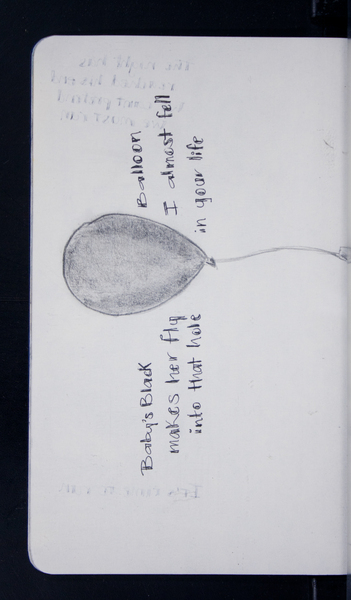 Baby's Black Balloon
makes her fly I almost fell
into that hole in your life